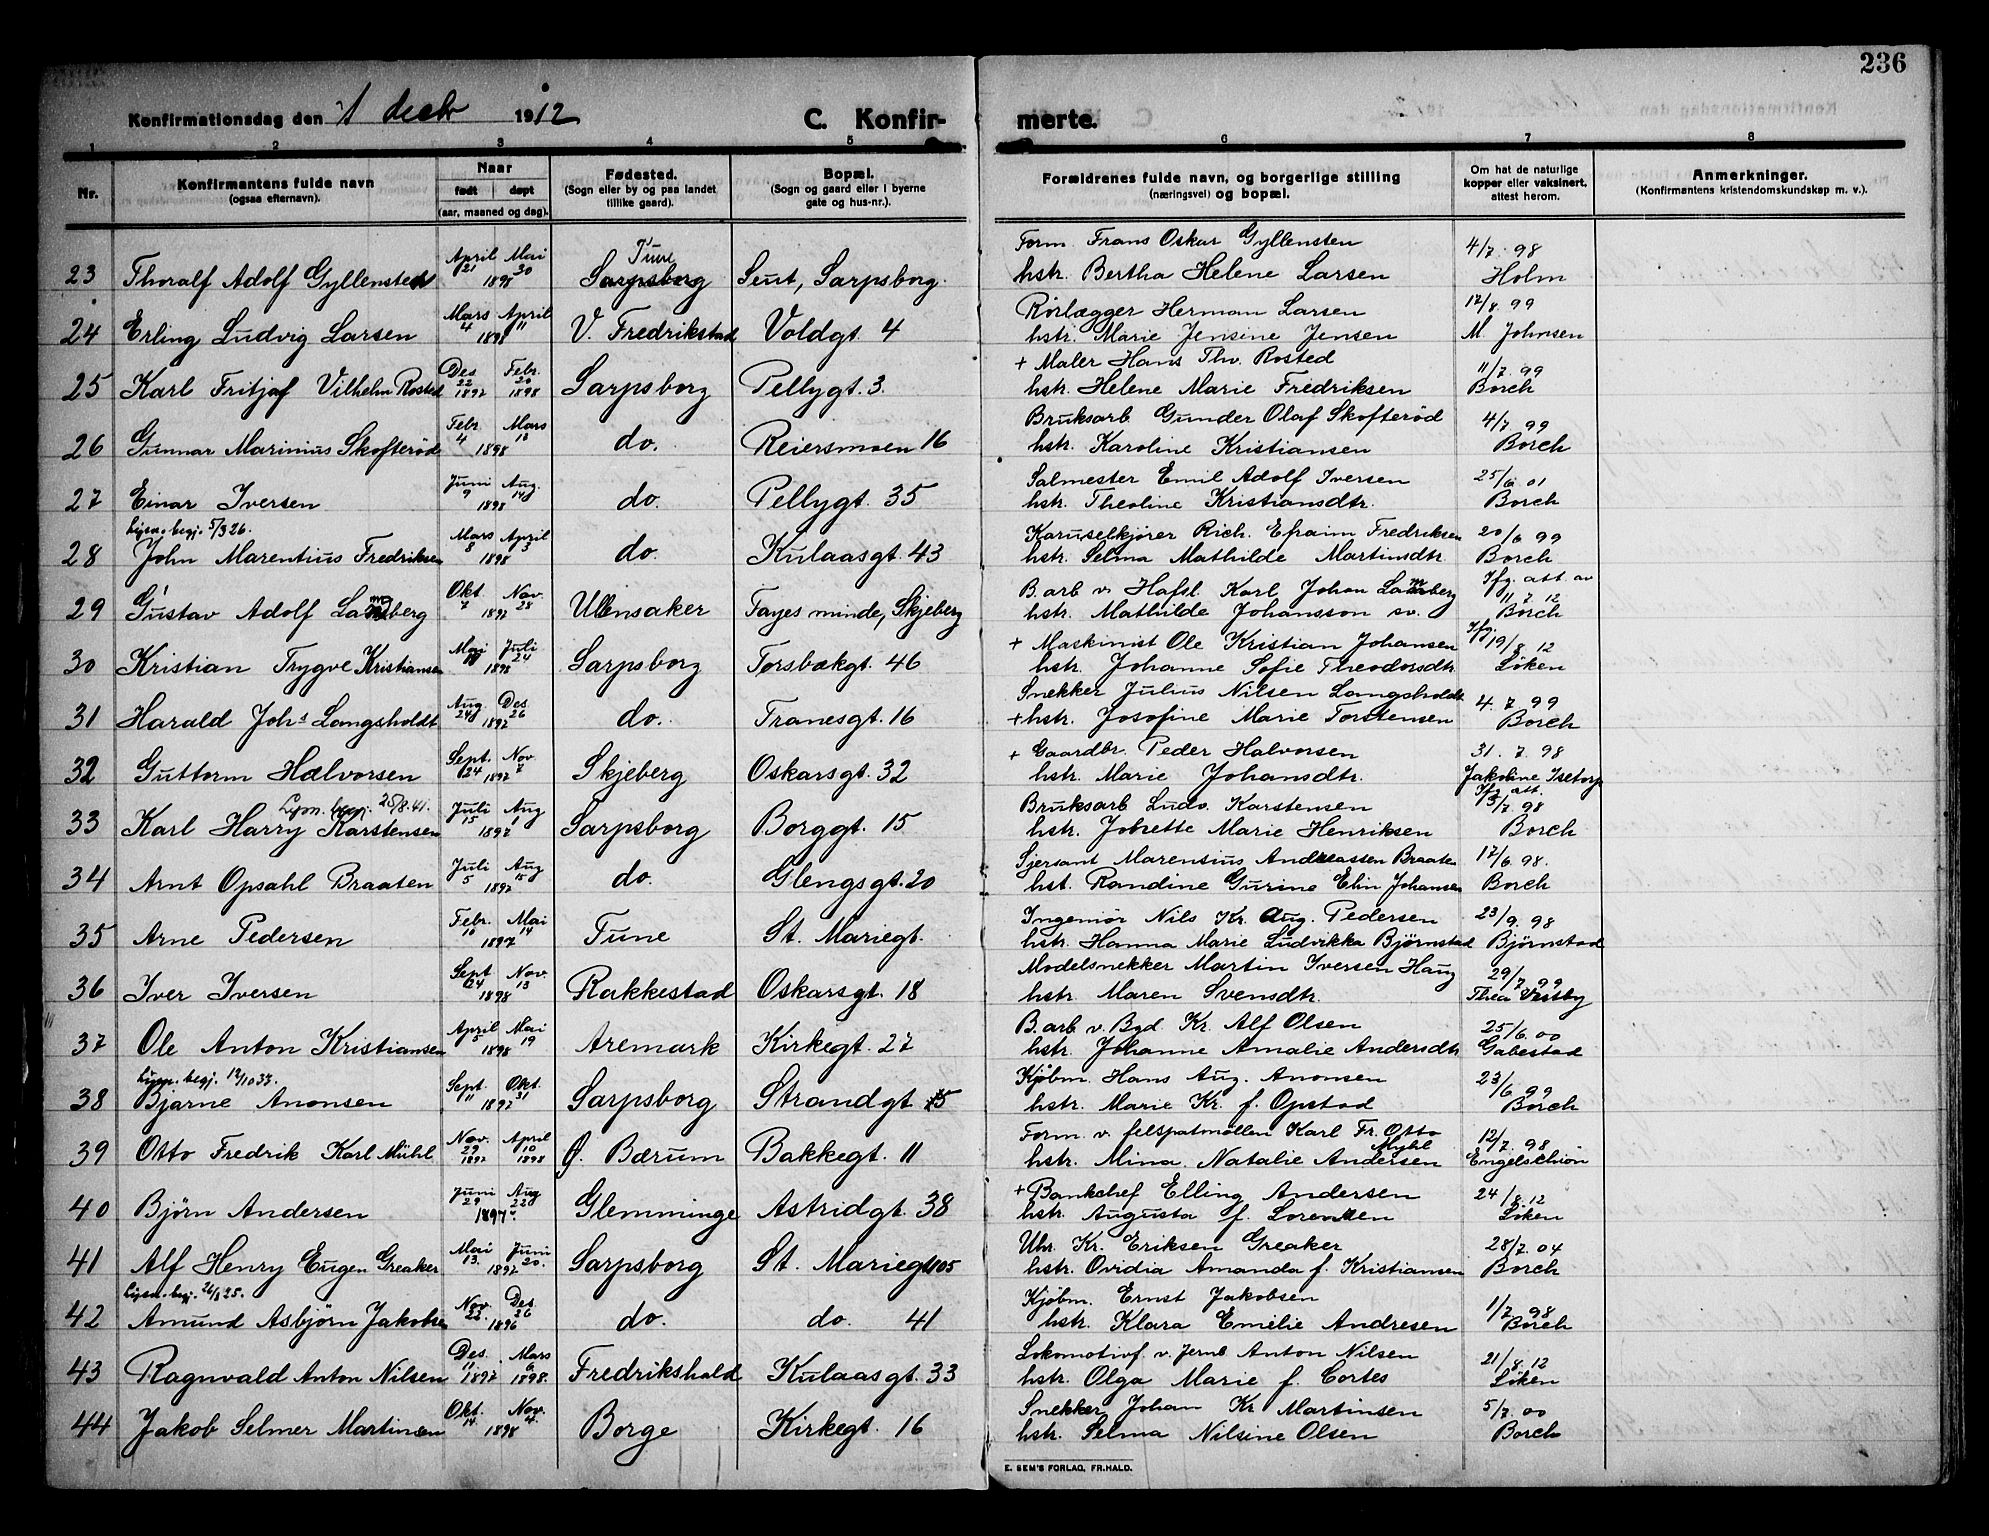 236
Konfirmationsdag den 1 decbr 1912
C. Konfirmerte.
1 2 3 4 5 6 7 8
Nr. Konfirmantens fulde navn (ogsaa efternavn). Naar født døpt (aar, maaned og dag). Fødested. (Sogn eller by og paa landet tillike gaard). Bopæl. (Sogn og gaard eller i byerne gate og hus-nr.). Forældrenes fulde navn, og borgerlige stilling (næringsvei) og bopæl. Om hat de naturlige kopper eller vaksinert, attest herom. Anmerkninger. (Konfirmantens kristendomskundskap m. v.).
23 Thoralf Adolf Gyllensten April 21 Mai 30 1898 Tune Sarpsborg Seut, Sarpsborg. Form. Frans Oskar Gyllensten 4/7 98
hstr. Bertha Helene Larsen Holm
24 Erling Ludvig Larsen Mars 4 April 11 1898 V. Fredrikstad Voldgt. 4 Rørlægger Herman Larsen 17/8 99
hstr. Marie Jensine Jensen M. Johnsen
25 Karl Fritjof Vilhelm Rosted Des 22 1897 Febr. 20 1898 Sarpsborg Pellygt. 3. + Maler Hans Thv. Rosted 11/7 99
hstr. Helene Marie Fredriksen Borch
26 Gunnar Marinius Skofterød Febr. 4 Mars 18 1898 do. Reiersmoen 16 Bruksarb Gunder Olaf Skofterød 4/7 99
hstr. Karoline Kristiansen Borch
27 Einar Iversen Juni 9 Aug. 14 1898 do. Pellygt. 35 Salmester Emil Adolf Iversen 25/6 01
hstr. Theoline Kristiansdtr. Borch
Ligsn. begj. 5/3 26.
28 John Marentius Fredriksen Mars 8 April 3 1898 do. Kulaasgt. 43 Karuselkjører Rich. Efraim Fredriksen 20/6 99
hstr. Selma Mathilde Martinsdtr Borch
29 Gustav Adolf Lamberg Okt 7 Nov. 28 1897 Ullensaker Fayes minde, Skjeberg B. arb v. Hafsl Karl Johan Lamberg Ifg. att av 11 7 12
hstr. Mathilde Johansson sv. Borch
30 Kristian Trygve Kristiansen Mai Juli 24 1898 Sarpsborg Torsbækgt. 46 + Maskinist Ole Kristian Johansen Ifg. 19/8 12
hstr. Johanne Sofie Theodorsdtr Løken
31 Harald Johs Langsholdt Aug. 24 Des. 26 1897 do. Tranesgt. 16 Snekker Julius Nilsen Langsholdt 4. 7 99
+ hstr. Josofine Marie Torstensen Borch
32 Guttorm Halvorsen Sept. 24 Nov. 7 1897 Skjeberg Oskarsgt. 32 + Gaardbr. Peder Halvorsen 31. 7. 98
hstr. Marie Johansdtr. Jakoline Isetorp
Lysn. begj. 25/8.41.
33 Karl Harry Karstensen Juli 15 Aug 1 1897 Sarpsborg Borggt. 15 Bruksarb Ludv. Karstensen Ifg att. 15/7 98
hstr. Josette Marie Henriksen Borch
34 Arnt Opsahl Braaten Juli 5 Aug 15 1897 do. Glengsgt. 20 Sjersant Marensius Andreassen Braaten 17/6 98.
hst. Randine Gurine Elin Johansen Borch
35 Arne Pedersen Febr. 10 Mai 14 1897 Tune St. Mariegt. Ingeniør Nils Kr. Aug. Pedersen 23/9. 98
hstr. Hanna Marie Ludvikka Bjørnstad Bjørnstad
36 Iver Iversen Sept 24 Nov. 13 1898 Rakkestad Oskarsgt. 18 Modelsnekker Martin Iversen Haug 29/7 99
hstr. Maren Svensdtr. Thea Vestby
37 Ole Anton Kristiansen April 5 Mai 19 1898 Aremark Kirkegt. 27 B. arb v. Bgd. Kr. Alf Olsen 25/6 00
hstr. Johanne Amalie Andersdtr Gabestad
Ligsn. begj. 12/10 33.
38 Bjarne Anonsen Sept. 11 Okt. 31 1897 Sarpsborg Strandgt 5 Kjøbm. Hans Aug. Anonsen 23/6 99
hstr. Marie Kr. f. Opstad Borch
39 Otto Fredrik Karl Mühl Nov. 29 1897 April 10 1898 Ø. Bærum Bakkegt. 11 Form. v. felspatmøllen Karl Fr. Otto Myhl 12/7 98
hstr. Mina Natalie Andersen Engelschiøn
40 Bjørn Andersen Juni 29 Aug 22 1897 Glemminge Astridgt. 38 + Bankchef Elling Andersen 24/8 12
hstr. Augusta f. Lorentzen Løken
41 Alf Henry Eugen Greaker Mai 13. Juni 20. 1897 Sarpsborg St. Mariegt 105 Uhr. Kr. Eriksen Greaker 28/7. 04
hstr. Ovidia Amanda f. Kristiansen Borch
Ligsn. begj. 26/8 25.
42 Amund Asbjørn Jakobsen Nov. 22. Des. 26 1896 do. do. 41 Kjøbm. Ernst Jakobsen 1/7 98
hstr. Klara Emilie Andresen Borch
43 Ragnvald Anton Nilsen Des. 11 1897 Mars 6 1898. Fredrikshald Kulaasgt. 33 Lokomotivf. v. Jernb Anton Nilsen 21/8 12
hstr. Olga Marie f. Cortes Løken
44 Jakob Selmer Martinsen Okt. 14 Nov. 4. 1898 Borge Kirkegt. 16 Snekker Johan Kr Martinsen 5/7. 00
hstr. Selma Nilsine Olsen Borch
E. SEM'S FORLAG, FR.HALD.